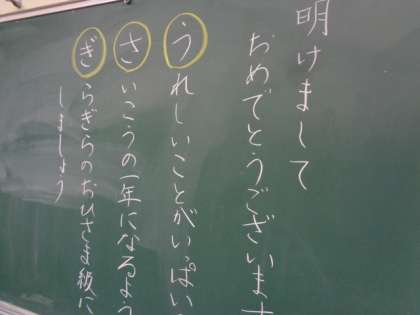 明けまして
おめでとうございます
うれしいことがいっぱい
さいこうの一年になるよう
ぎらぎらのおひさま級に
しましょう